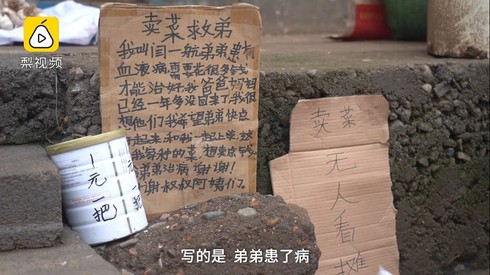 梨视频
卖菜救弟
我叫闫一航弟弟患有
血液病需要花很多钱
才能治好我爸爸妈妈
已经一年多没回来了我很
想他们我希望弟弟快点
起来和我一起上学这
我家种的菜,想卖点钱
弟弟治病 谢谢!
谢叔叔阿姨们
一元一把
卖菜
无人看摊
写的是 弟弟患了病